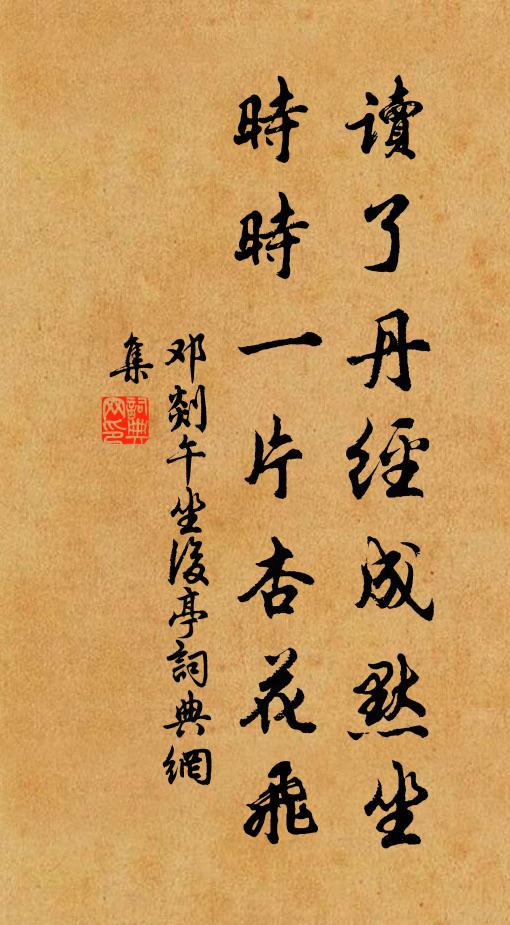 讀了丹經成默坐
時時一片杏花飛
邓剡午坐後亭詞典網
集
詞典網印